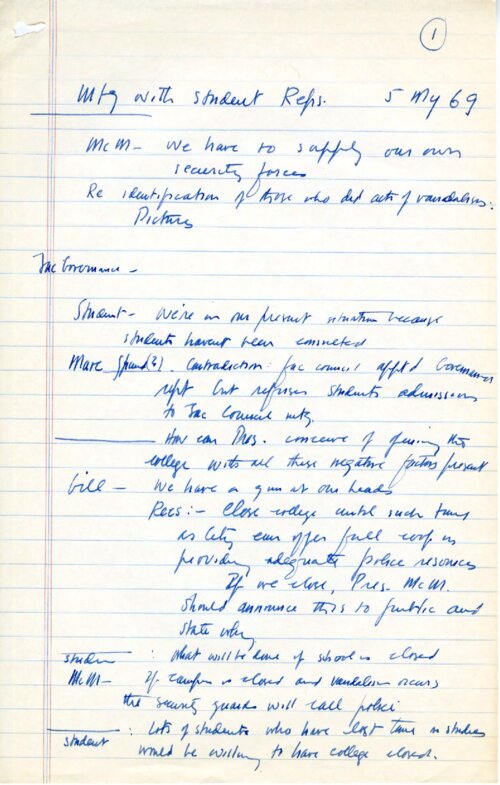 1
Mtg with student Reps. 5 My 69
McM- We have to supply our own
security forces
Re identification of those who did acts of vandalism:
Pictures
Fac Governance -
Student- We're in our present situation because
students havent been consulted
Marc (?). Contradiction: fac council appt'd Governance
rept but refuses students admissions
to Fac Council mtg.
How can Pres. conceive of opening the
college with all these negative factors present
Bill - We have a gun at our heads
Recs:- Close college until such time
as City can offer full coop in
providing adequate police resources
If we close, Pres. McM.
should announce this to public and
state why
student : what will be done if school is closed
McM- If campus is closed and vandalism occurs
the security guards will call police
student : Lots of students who have lost time in studies
would be willing to have college closed.